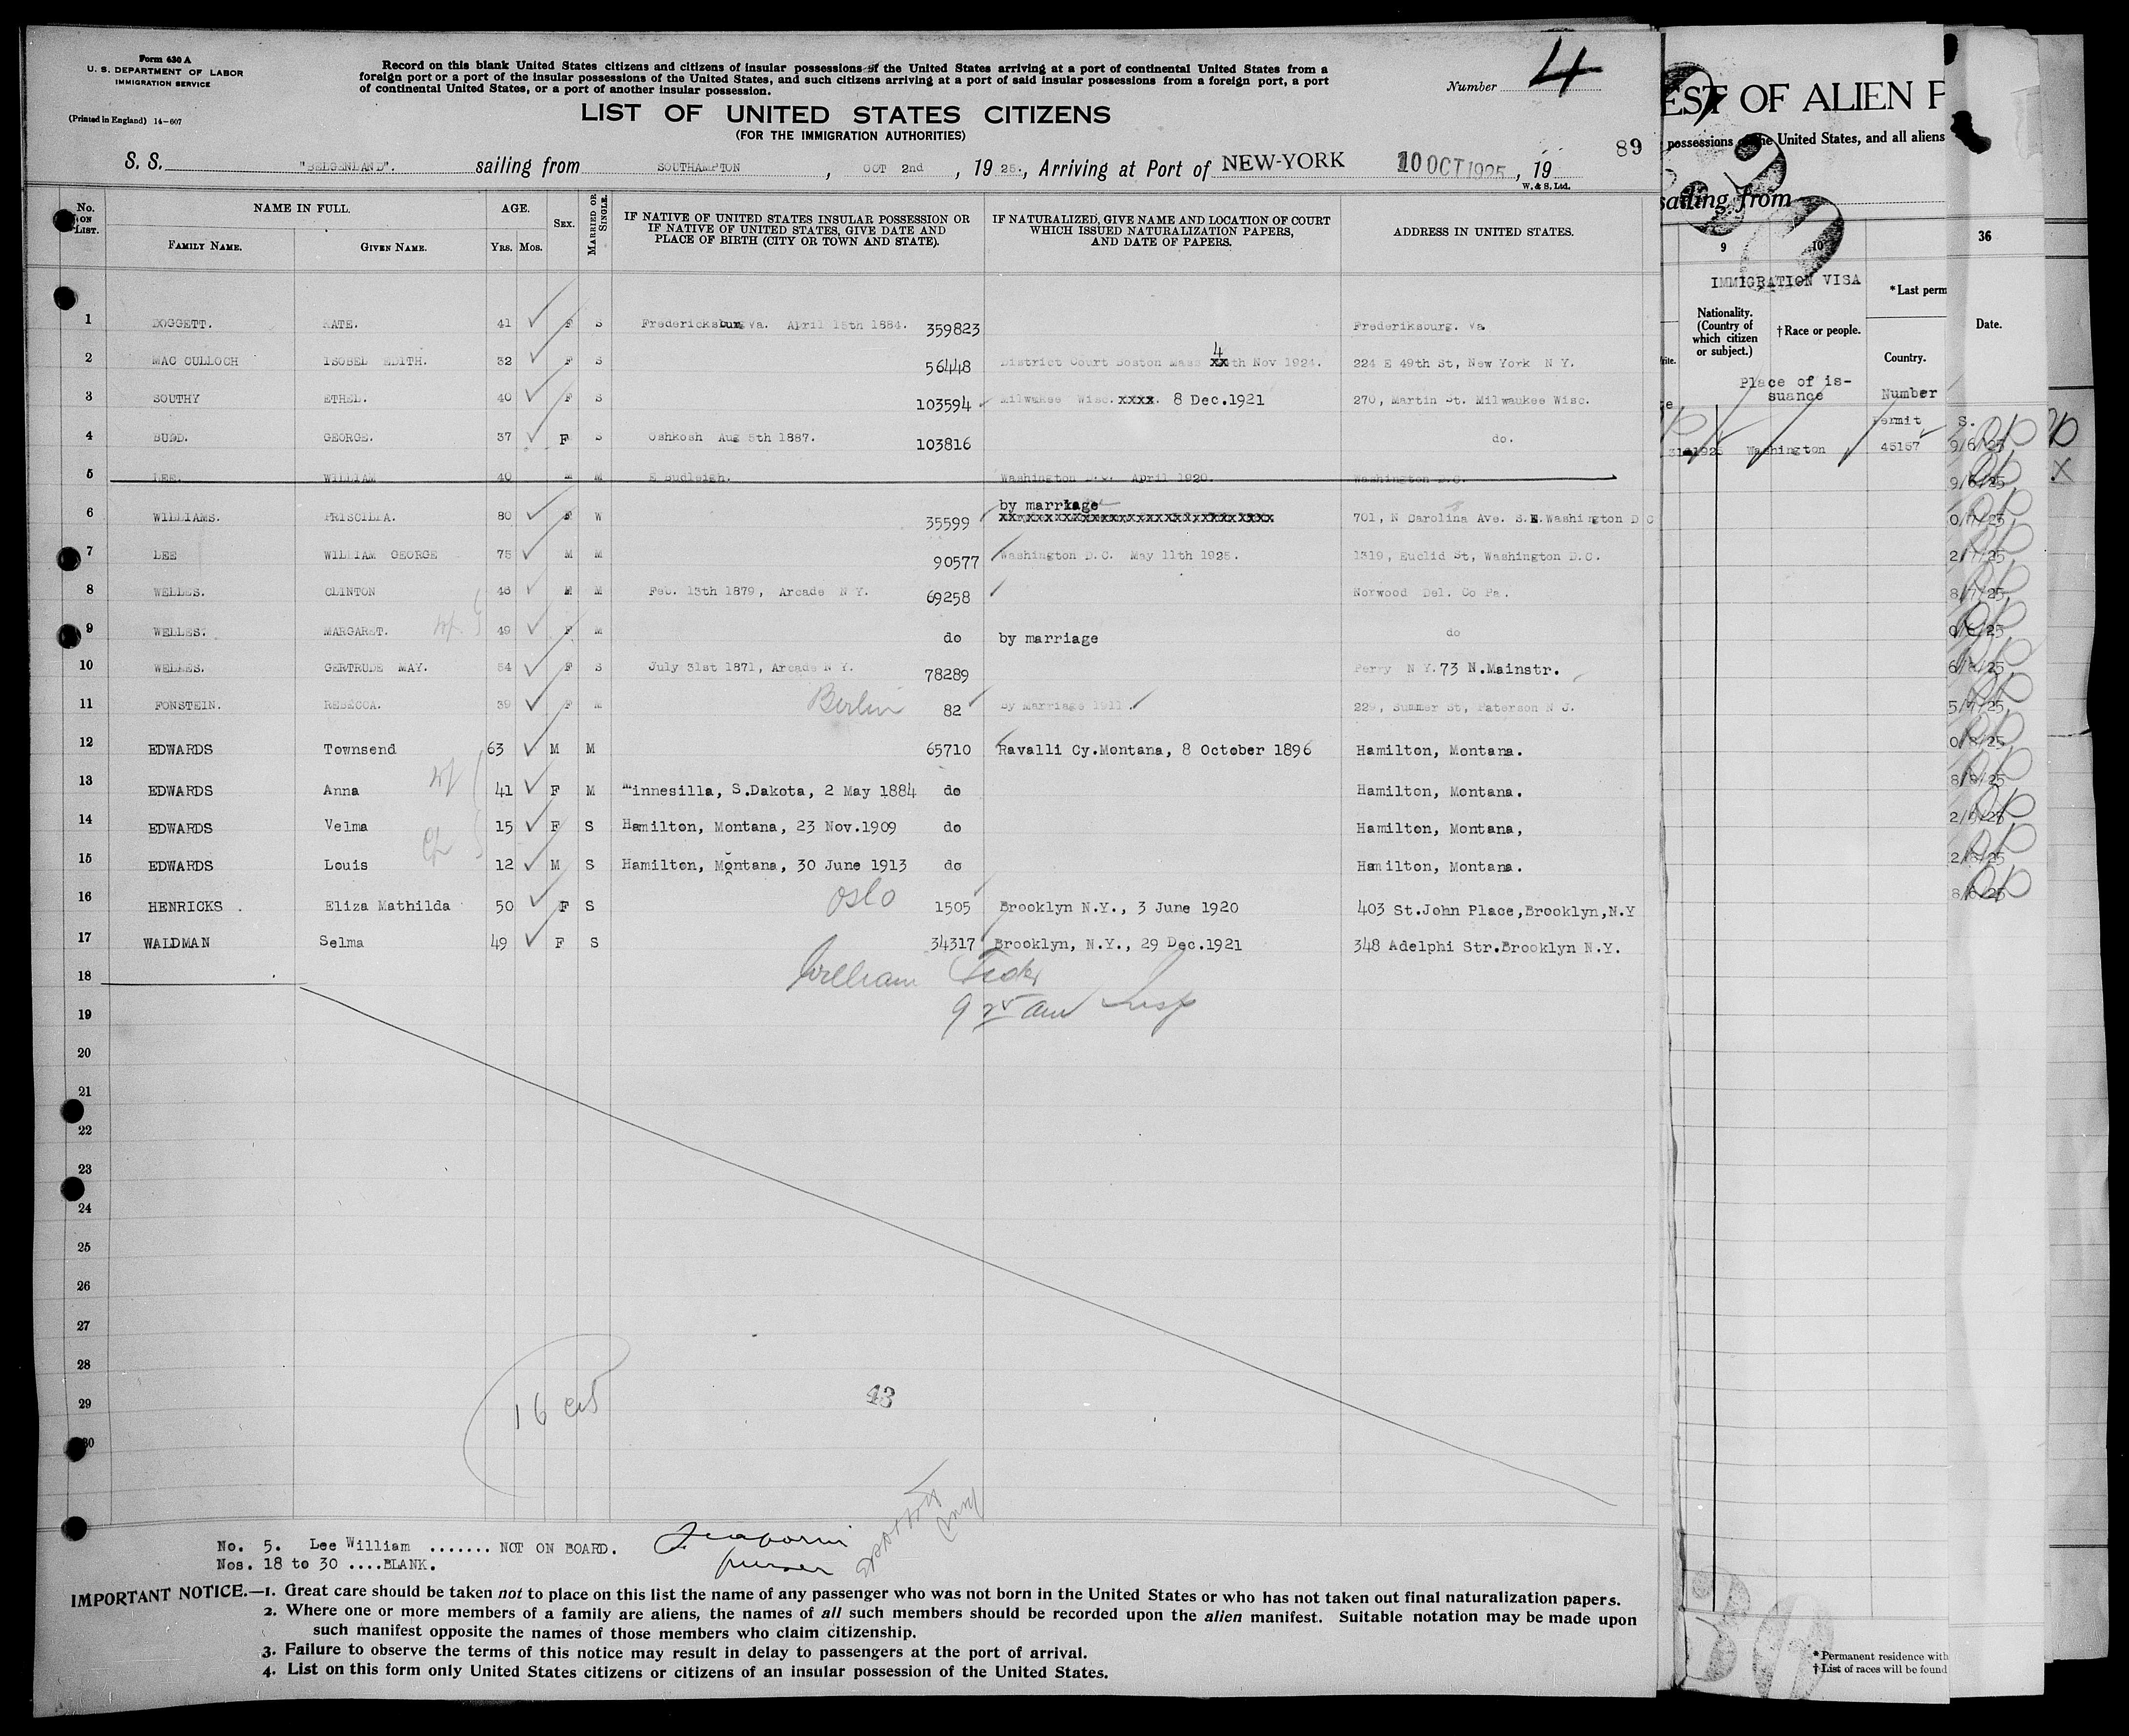 Form 630 A
U. S. DEPARTMENT OF LABOR
IMMIGRATION SERVICE
(Printed in England) 14-607
Record on this blank United States citizens and citizens of insular possessions of the United States arriving at a port of continental United States from a
foreign port or a port of the insular possessions of the United States, and such citizens arriving at a port of said insular possessions from a foreign port, a port
of continental United States, or a port of another insular possession.
Number 4
LIST OF UNITED STATES CITIZENS
(FOR THE IMMIGRATION AUTHORITIES)
89
S. S. "BELGENLAND". sailing from SOUTHAMPTON, OCT 2nd, 1925., Arriving at Port of NEW-YORK 10 OCT 1925, 19
W. & S. Ltd.
No. ON LIST.
NAME IN FULL.
FAMILY NAME. GIVEN NAME.
AGE.
Yrs. Mos.
SEX.
MARRIED OR SINGLE.
IF NATIVE OF UNITED STATES INSULAR POSSESSION OR
IF NATIVE OF UNITED STATES, GIVE DATE AND
PLACE OF BIRTH (CITY OR TOWN AND STATE).
IF NATURALIZED, GIVE NAME AND LOCATION OF COURT
WHICH ISSUED NATURALIZATION PAPERS,
AND DATE OF PAPERS.
ADDRESS IN UNITED STATES.
1 DOGGETT. KATE. 41 F S Fredericksburg Va. April 15th 1884. 359823 Frederiksburg. Va
2 MAC CULLOCH ISOBEL EDITH. 32 F S 56448 District Court Boston Mass xx 4 th Nov 1924. 224 E 49th St, New York N Y.
3 SOUTHY ETHEL. 40 F S 103594 Milwakee Wisc. xxxx. 8 Dec.1921 270, Martin St. Milwaukee Wisc.
4 BUDD. GEORGE. 37 F S Oshkosh Aug 5th 1887. 103816 do.
5 LEE. WILLIAM 40 M M E Budleigh. Washington D.C. April 1920. Washington D.C.
6 WILLIAMS. PRISCILLA. 80 F W 35599 by marriage 701, N Carolina Ave. S.E.Washington D C
7 LEE WILLIAM GEORGE 75 M M 90577 Washington D.C. May 11th 1925. 1319, Euclid St, Washington D.C.
8 WELLES. CLINTON 46 M M Feb. 13th 1879, Arcade N Y. 69258 Norwood Del. Co Pa.
9 WELLES. MARGARET. wf 49 F M do by marriage do
10 WELLES. GERTRUDE MAY. 54 F S July 31st 1871, Arcade N Y. 78289 Perry N Y. 73 N.Mainstr.
11 FONSTEIN. REBECCA. 39 F M Berlin 82 by Marriage 1911. 229, Summer St, Paterson N J.
12 EDWARDS Townsend 63 M M 65710 Ravalli Cy.Montana, 8 October 1896 Hamilton, Montana.
13 EDWARDS Anna wf 41 F M Minnesilla, S.Dakota, 2 May 1884 do Hamilton, Montana.
14 EDWARDS Velma 15 F S Hamilton, Montana, 23 Nov.1909 do Hamilton, Montana,
15 EDWARDS Louis ch 12 M S Hamilton, Montana, 30 June 1913 do Hamilton, Montana.
16 HENRICKS . Eliza Mathilda 50 F S Oslo 1505 Brooklyn N.Y., 3 June 1920 403 St.John Place,Brooklyn,N.Y
17 WALDMAN Selma 49 F S 34317 Brooklyn, N.Y., 29 Dec.1921 348 Adelphi Str.Brooklyn N.Y.
18 William
19 9 25 am Insp
20
21
22
23
24
25
26
27
28
29 16 43
30
No. 5. Lee William ....... NOT ON BOARD.
Nos. 18 to 30 ....BLANK.
purser
IMPORTANT NOTICE.—1. Great care should be taken not to place on this list the name of any passenger who was not born in the United States or who has not taken out final naturalization papers.
2. Where one or more members of a family are aliens, the names of all such members should be recorded upon the alien manifest. Suitable notation may be made upon
such manifest opposite the names of those members who claim citizenship.
3. Failure to observe the terms of this notice may result in delay to passengers at the port of arrival.
4. List on this form only United States citizens or citizens of an insular possession of the United States.
EST OF ALIEN P
possessions of the United States, and all aliens
sailing from
9 10 36
IMMIGRATION VISA
*Last perm
Nationality.
(Country of
which citizen
or subject.)
†Race or people.
Country.
Date.
Place of is-
suance
Number
Permit S.
Washington 45157 9/6/25
9/6/25
0/7/25
2/7/25
8/7/25
5/7/25
8/8/25
*Permanent residence with
†List of races will be found